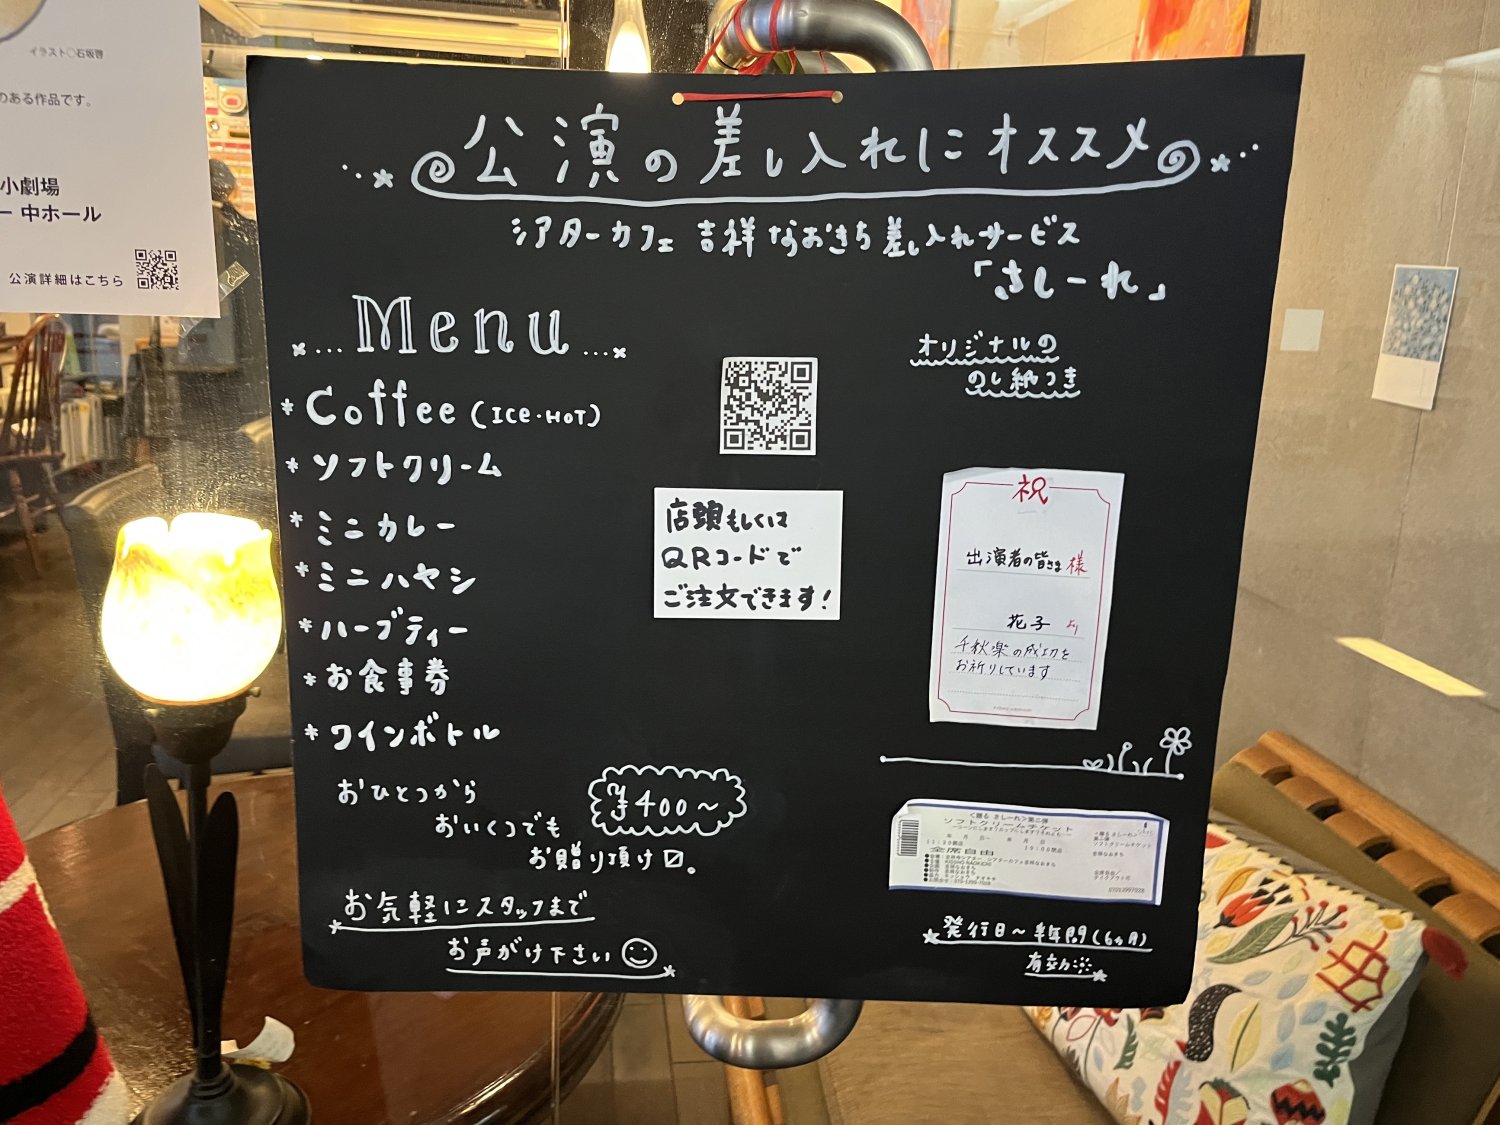 イラスト◯石坂啓
のある作品です。
小劇場
ー 中ホール
公演詳細はこちら
公演の差し入れにオススメ
シアターカフェ 吉祥なおきち差し入れサービス
「さしーれ」
Menu
Coffee (ICE・HOT)
ソフトクリーム
ミニカレー
ミニハヤシ
ハーブティー
お食事券
ワインボトル
おひとつから
おいくつでも
お贈り頂け〼。
¥400〜
お気軽にスタッフまで
お声がけ下さい
店頭もしくは
QRコードで
ご注文できます!
オリジナルの
のし紙つき
祝
出演者の皆さま 様
花子 より
千秋楽の成功を
お祈りしています
<贈る さしーれ>第二弾
ソフトクリームチケット
全席自由
発行日〜半年間(6ヶ月)
有効